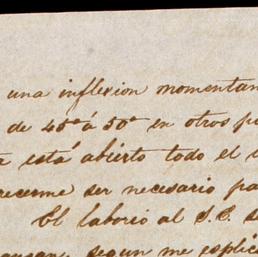 una inflexion momentan
de 45° á 50° en otros p
está abierto todo el
recerme ser necesario pa
El laborio al S.E. s
segun me esplic